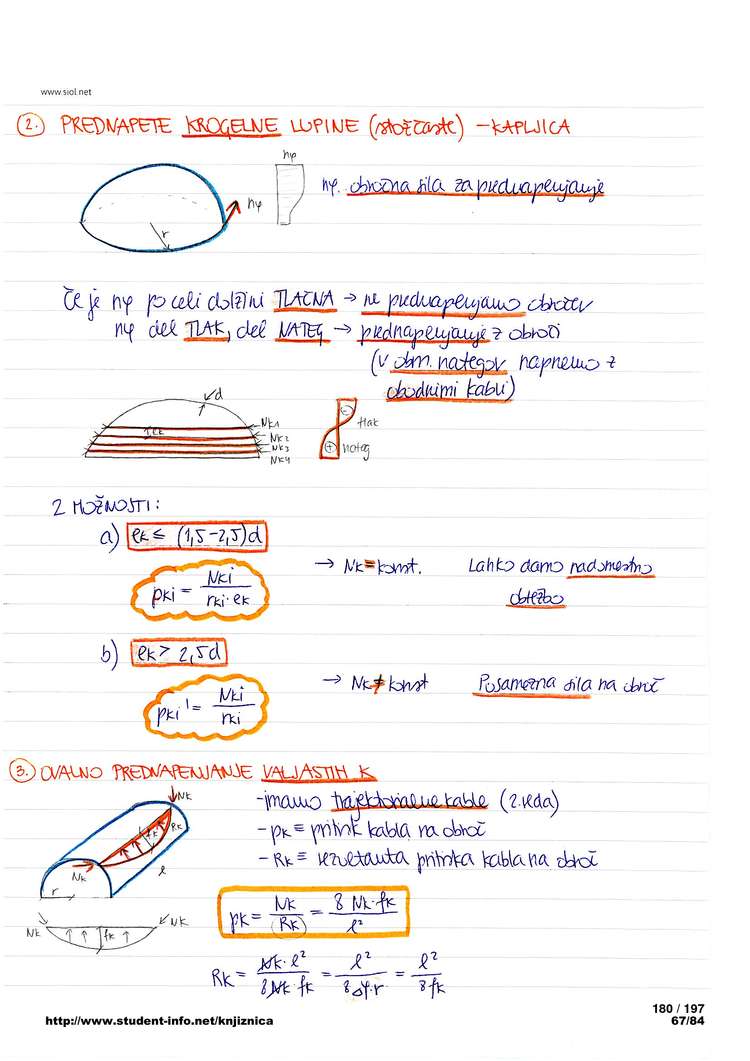 www.siol.net
2. PREDNAPETE KROGELNE LUPINE (stožčaste) - KAPLJICA
nφ
nφ
r
nφ. obročna sila za prednapenjanje
Če je nφ po celi dolžini TLAČNA → ne prednapenjamo obročev
nφ del TLAK, del NATEG → prednapenjanje z obroči
(v obm. nategov napnemo z
obodnimi kabli)
d
ek
Nk1
Nk2
Nk3
Nk4
- tlak
+ nateg
2 MOŽNOSTI:
a) ek ≤ (1,5-2,5)d
pki = Nki / rki·ek → Nk = konst. Lahko damo nadomestno
obtežbo
b) ek > 2,5d
pki' = Nki / rki → Nk ≠ konst Posamezna sila na obroč
3. OVALNO PREDNAPENJANJE VALJASTIH K
- imamo trajektorialne kable (2. reda)
- pk ≡ pritisk kabla na obroč
- Rk ≡ rezultanta pritiska kabla na obroč
Nk
Rk
fk
Nk
l
r
Nk
fk
Nk
pk = Nk / Rk = 8 Nk·fk / l²
Rk = Nk·l² / 8 Nk·fk = l² / 8·Δφ·r = l² / 8 fk
180 / 197
http://www.student-info.net/knjiznica 67/84